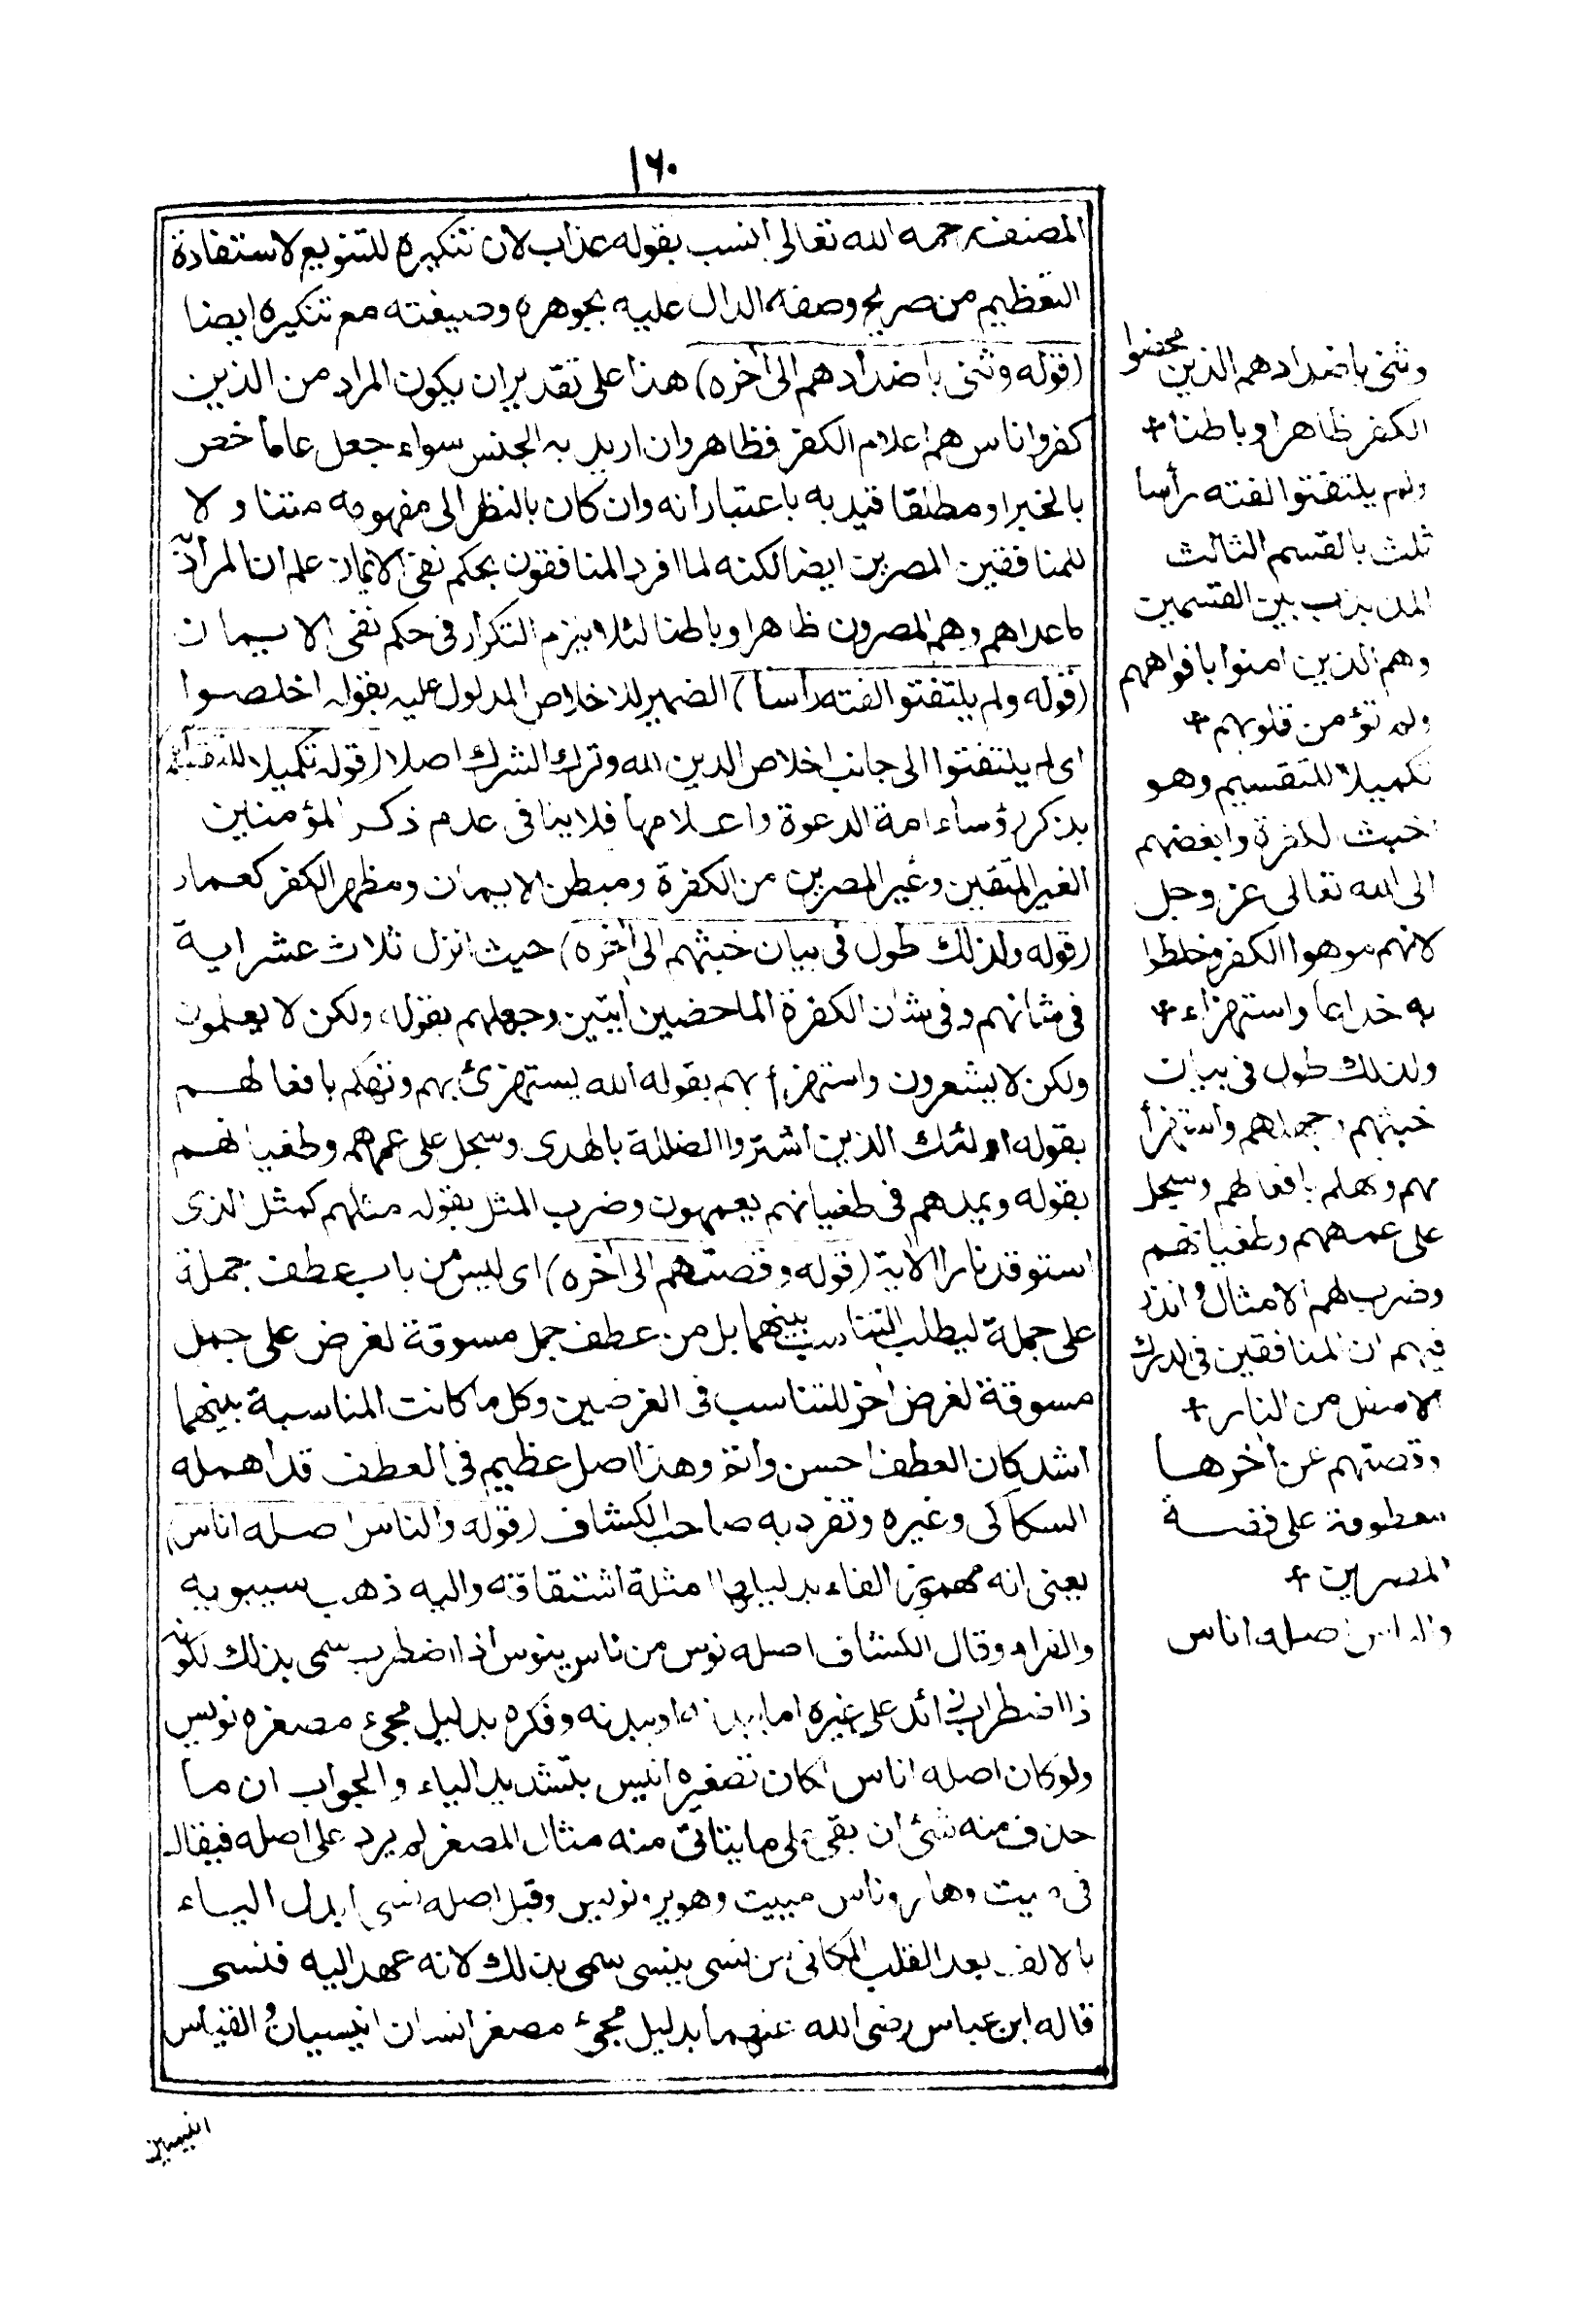 ١٦٠
المصنف رحمه الله تعالى انسب بقوله عذاب لان تنكيره للتنويع لاستفادة
التعظيم من صريح وصفه الدال عليه بجوهره وصيغته مع تنكيره ايضا
(قوله وثنى باضدادهم الى أخره) هذا على تقدير ان يكون المراد من الذين
كفروا ناس هم اعلام الكفر فظاهر وان اريد به الجنس سواء جعل عاما خص
بالخبر او مطلقا قيد به باعتبار انه وان كان بالنظر الى مفهومه متناولا
للمنافقين المصرين ايضا لكنه لما افرد المنافقون بحكم نفى الايمان علم ان المراد
ماعداهم وهم المصرون ظاهرا وباطنا لئلا يلزم التكرار فى حكم نفى الايمان
(قوله ولم يلتفتوا لفته رأسا) الضمير للاخلاص المدلول عليه بقوله اخلصوا
اى لم يلتفتوا الى جانب اخلاص الدين لله وترك الشرك اصلا (قوله تكميلا للتقسيم)
بذكر رؤساء امة الدعوة واعلامها فلاينافى عدم ذكر المؤمنين
الغير المتقين وغير المصرين من الكفرة ومبطن الايمان ومظهر الكفر كعمار
(قوله ولذلك طول فى بيان خبثهم الى أخره) حيث انزل ثلاث عشراية
فى شانهم وفى شان الكفرة الماحضين أيتين وجهلهم بقوله ولكن لا يعلمون
ولكن لا يشعرون واستهزأ بهم بقوله الله يستهزئ بهم وتهكم بافعالهم
بقوله اولئك الذين اشتروا الضلالة بالهدى وسجل على عمههم وطغيانهم
بقوله ويمدهم فى طغيانهم يعمهون وضرب المثل بقوله مثلهم كمثل الذى
استوقد نارا الاية (قوله وقصتهم الى أخره) اى ليس من باب عطف جملة
على جملة ليطلب التناسب بينهما بل من عطف جمل مسوقة لغرض على جمل
مسوقة لغرض اخر للتناسب فى الغرضين وكل ما كانت المناسبة بينهما
اشد كان العطف احسن واتم وهذا اصل عظيم فى العطف قد اهمله
السكاكى وغيره وتفرد به صاحب الكشاف (قوله والناس اصله اناس)
يعنى انه مهموز الفاء بدليل امثلة اشتقاقه واليه ذهب سيبويه
والفراء وقال الكشاف اصله نوس من ناس ينوس اذا اضطرب سمى بذلك لكونه
ذا اضطراب زائد على غيره اما وبدنه وفكره بدليل مجئ مصغره نويس
ولو كان اصله اناس لكان تصغيره انيس بتشديد الياء والجواب ان ما
حذف منه شئ ان بقى على ما يتاتى منه مثال المصغر لم يرد على اصله فيقال
فى ميت وهار وناس مييت وهوير ونويس وقيل اصله نسى ابدل الياء
بالالف بعد القلب المكانى من نسى ينسى سمى بذلك لانه عهد اليه فنسى
قاله ابن عباس رضى الله عنهما بدليل مجئ مصغر انسان انيسيان والقياس
انيسيان
وثنى باضدادهم الذين محضوا
الكفر ظاهرا وباطنا+
ولم يلتفتوا لفته رأسا
ثلث بالقسم الثالث
المذبذب بين القسمين
وهم الذين امنوا بافواههم
ولم تؤمن قلوبهم+
تكميلا للتقسيم وهو
اخبث الكفرة وابغضهم
الى الله تعالى عز وجل
لانهم موهوا الكفر وخلطوا
به خداعا واستهزاء+
ولذلك طول فى بيان
خبثهم وجهلهم واستهزأ
بهم وتهكم بافعالهم وسجل
على عمههم وطغيانهم
وضرب لهم الامثال وانزل
فيهم ان المنافقين فى الدرك
الاسفل من النار+
وقصتهم عن أخرها
معطوفة على قصة
المصرين+
والناس اصله اناس